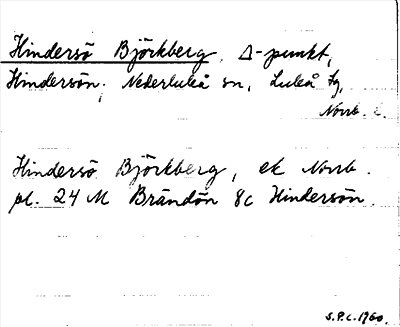 Hindersö Björkberg, Δ-punkt,
Hindersön, Nederluleå sn, Luleå tg,
Norrb. l.
Hindersö Björkberg, ek Norrb.
pl. 24 M Brändön 8c Hindersön.
S.P.C. 1960.